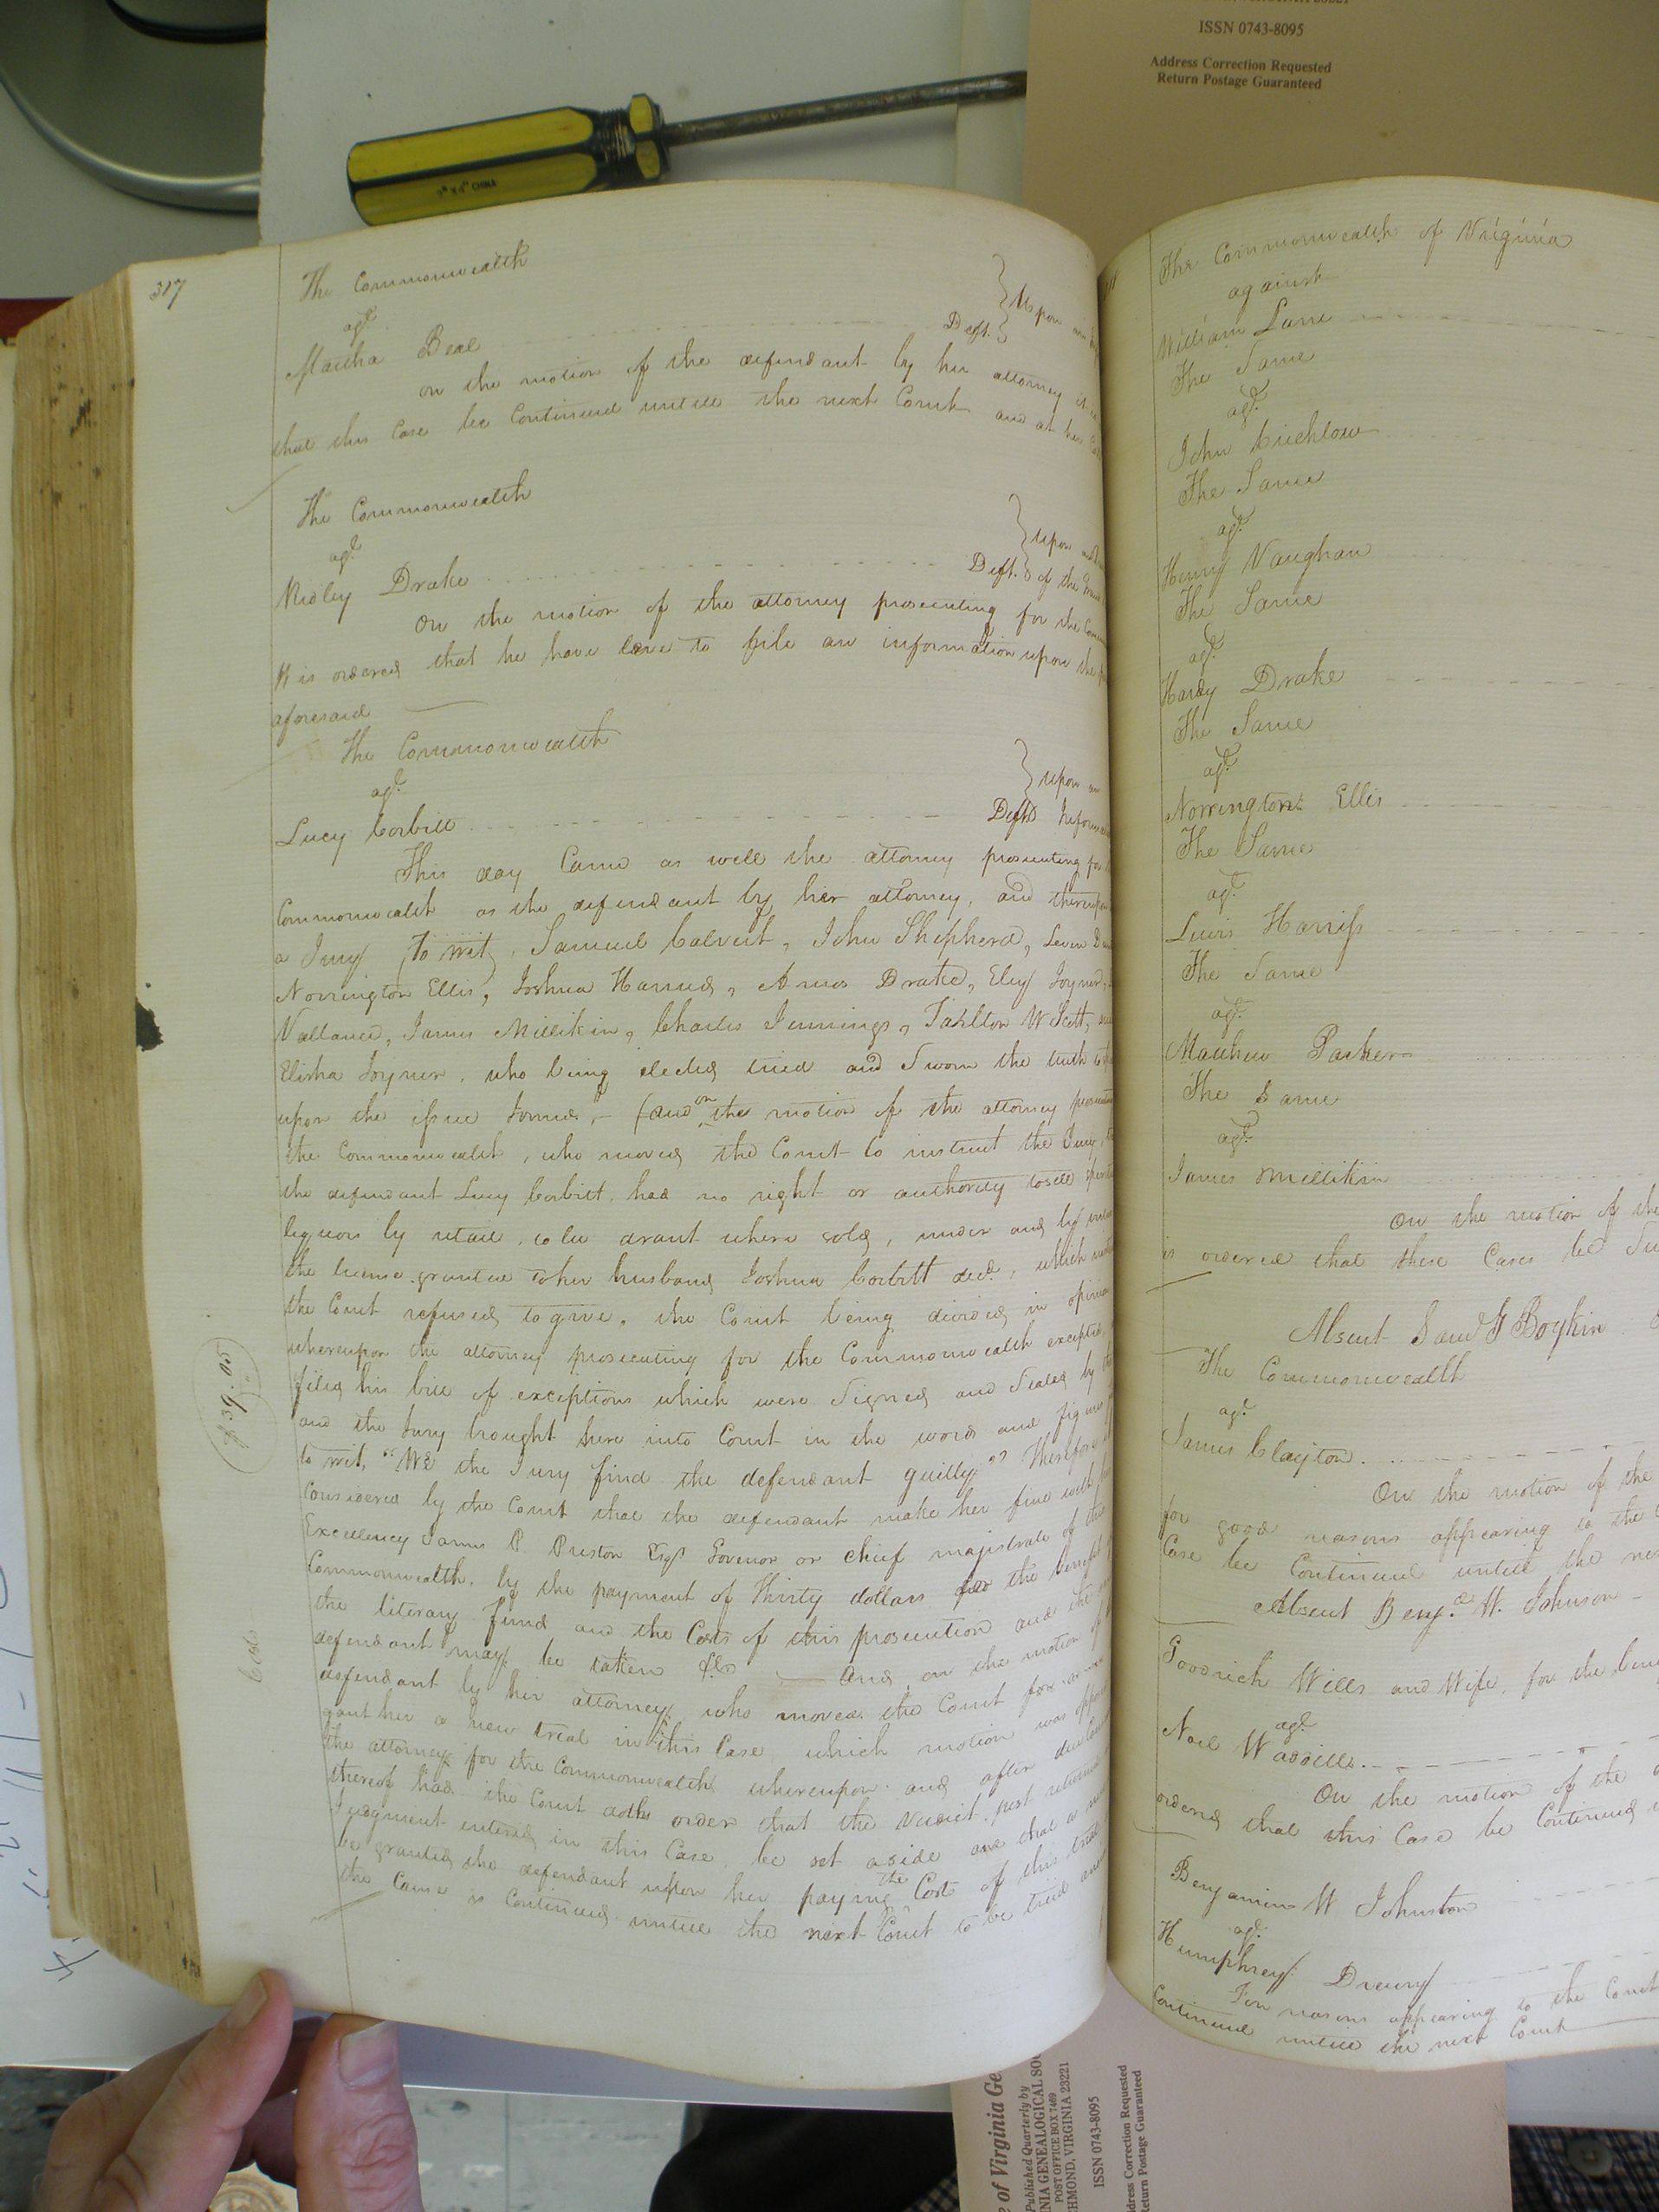 VIRGINIA 23221
ISSN 0743-8095
Address Correction Requested
Return Postage Guaranteed
CHINA
317
The Commonwealth
agt
Martha Beal Deft. Upon an
on the motion of the defendant by her attorney
that this Case be Continued untill the next Court and at her
The Commonwealth
agt
Ridley Drake Deft. upon
of the
On the motion of the attorney prosecuting for the
It is ordered that he have leave to file an information upon the
aforesaid
The Commonwealth
agt
Lucy Corbitt Deft upon an
This day Came as well the attorney prosecuting for
Commonwealth as the defendant by her attorney, and thereupon
a Jury (to wit), Samuel Calvert, John Shepherd,
Norrington Ellis, Joshua Harris, Amos Drake, Eley Joyner,
Vallance, James Millikin, Charles Jennings, Tarlton W Scott,
Elisha Joyner, who being elected tried and Sworn the truth
upon the issue Joined, - (and on the motion of the attorney
the Commonwealth, who moved the Court to instruct the Jury,
the defendant Lucy Corbitt had no right or authority to sell
liquors by retail, to be drank where sold, under and by
the license granted to her husband Joshua Corbitt decd., which
the Court refused to give, the Court being divided in opinion
whereupon the attorney prosecuting for the Commonwealth excepted,
filed his bill of exceptions which were Signed and Sealed by
and the Jury brought here into Court in the words and figures
to wit, "We the Jury find the defendant guilty" Therefore
Considered by the Court that the defendant make her fine with
Excellency James P. Preston Esqr Governor or chief magistrate of the
Commonwealth, by the payment of Thirty dollars for the benefit
the literary fund and the Costs of this prosecution and the
defendant may be taken &c And, on the motion of
defendant by her attorney, who moved the Court for
gant her a new trial in this Case which motion was
the attorney for the Commonwealth whereupon and after due
thereof had the Court doth order that the Verdict
Judgment entered in this Case, be set aside and that a
be granted the defendant upon her paying the Costs of this trial
the Cause is Continued untill the next Court to be tried
$39.05
The Commonwealth of Virginia
against
William Lane
The Same
agt
John
The Same
agt
Henry Vaughan
The Same
agt
Hardy Drake
The Same
agt
Norrington Ellis
The Same
agt
Lewis Harriss
The Same
agt
Matthew Parker
The Same
agt
James Millikin
On the motion of the
is ordered that these Cases be
Absent Saml G Boykin
The Commonwealth
agt
James Clayton
On the motion of the
for good reasons appearing to the
Case be Continued untill the
Absent Benj. W. Johnson
Goodrich Wills and Wife, for the
agt
Noel Waddill
On the motion of the
ordered that this Case be Continued
Benjamin W Johnston
agt
Humphrey Drewry
For reasons appearing to the Court
Continued untill the next Court
of Virginia Ge
Published Quarterly by
NIA GENEALOGICAL SOC
POST OFFICE BOX 7469
HMOND, VIRGINIA 23221
ISSN 0743-8095
ddress Correction Requested
Return Postage Guaranteed